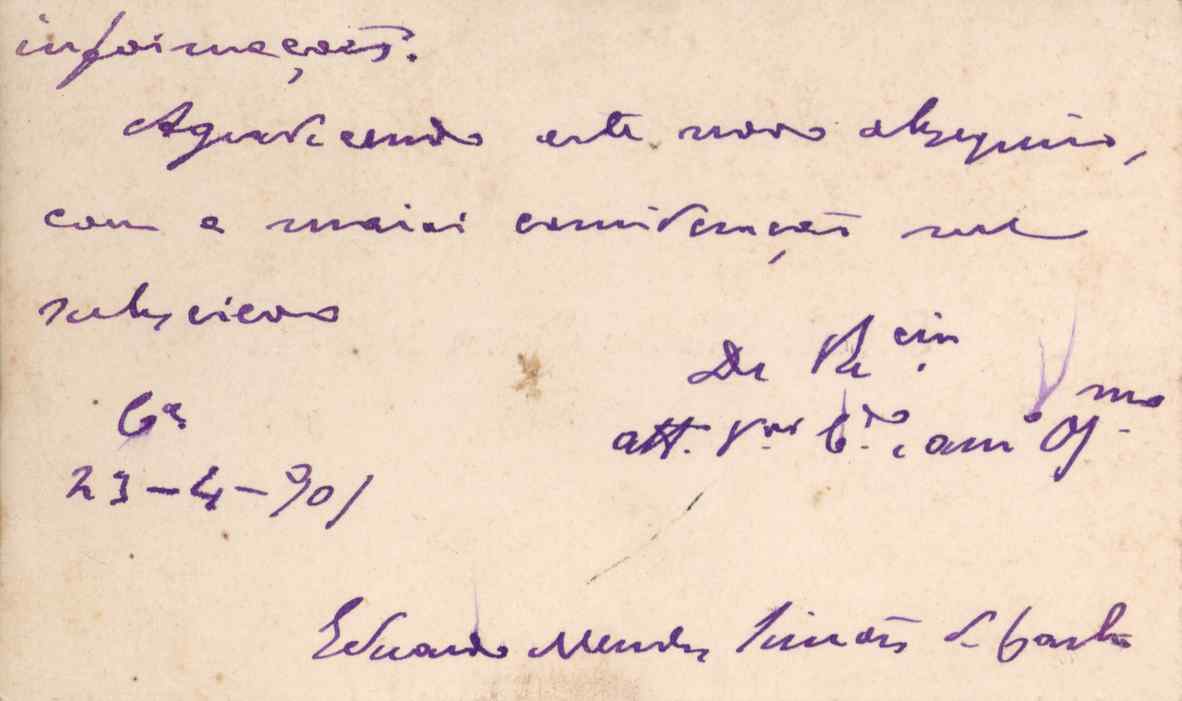 informações.
Agradecendo este novo obsequio,
com a maior consideração me
subscrevo
De V. Ex.cia
att.º V.or C.do e am.º Obg.mo
C.ª
23-4-901
Eduardo Mendes Simões de Castro